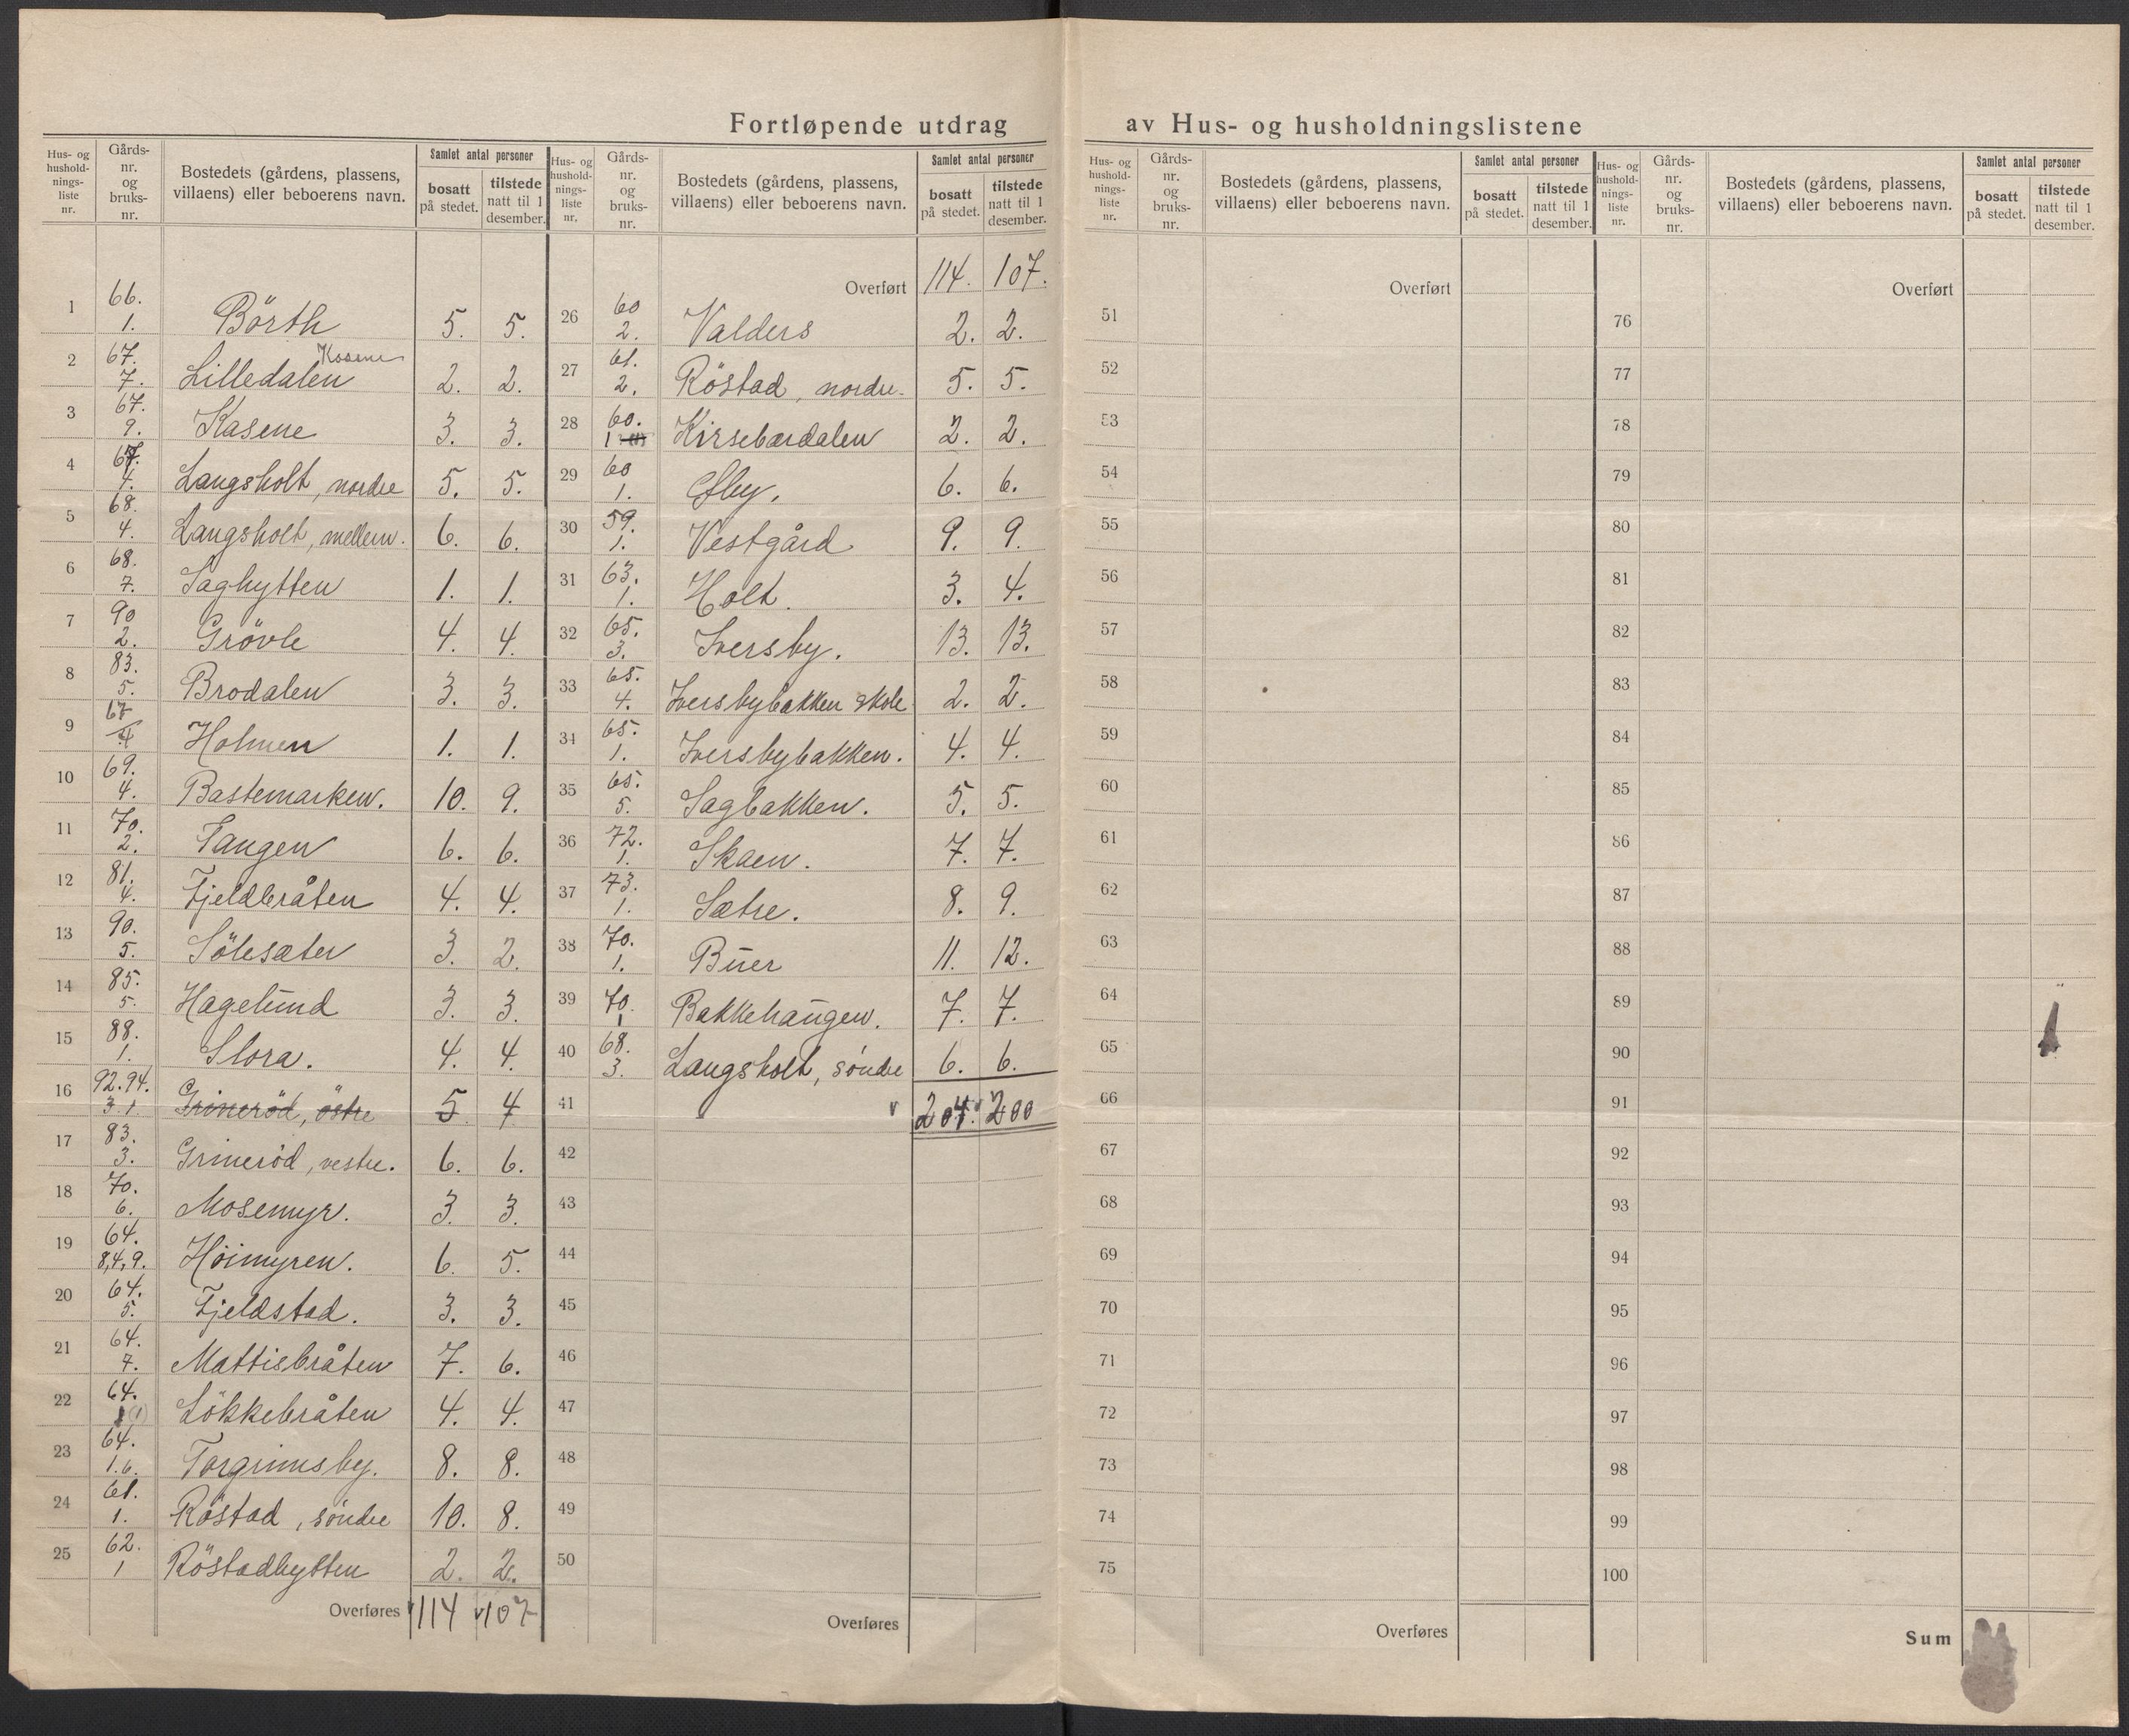 Fortløpende utdrag av Hus- og husholdningslistene
Hus- og husholdningsliste nr. | Gårds- nr. og bruks- nr. | Bostedets (gårdens, plassens, villaens) eller beboerens navn. | Samlet antal personer | bosatt på stedet. | tilstede natt til 1 desember.
1 | 66. 1. | Börth | 5. | 5.
2 | 67. 7. | Lilledalen Kasene | 2. | 2.
3 | 67. 9. | Kasene | 3. | 3.
4 | 67. 4. | Langsholt, nordre | 5. | 5.
5 | 68. 4. | Langsholt, mellem. | 6. | 6.
6 | 68. 7. | Saghytten | 1. | 1.
7 | 90 2. | Grövle | 4. | 4.
8 | 83. 5. | Brodalen | 3. | 3.
9 | 67 4 | Holmen | 1. | 1.
10 | 69. 4. | Bastemarken. | 10. | 9.
11 | 70. 2. | Tangen | 6. | 6.
12 | 81. 4. | Fjeldbråten | 4. | 4.
13 | 90. 5. | Sötesæter | 3. | 2.
14 | 85. 5. | Hagelund | 3. | 3.
15 | 88. 1. | Slora. | 4. | 4.
16 | 92. 94. 3. 1 | Grineröd, östre | 5 | 4
17 | 83. 3. | Grineröd, vestre. | 6. | 6.
18 | 70. 6. | Mosemyr. | 3. | 3.
19 | 64. 8,4,9. | Höimyren. | 6. | 5.
20 | 64. 5. | Fjeldstad. | 3. | 3.
21 | 64. 7. | Mattisbråten | 7. | 6.
22 | 64. 1 (1) | Lökkebråten | 4. | 4.
23 | 64. 1.6. | Torgrimsby. | 8. | 8.
24 | 61. 1. | Röstad, söndre | 10. | 8.
25 | 62. 1 | Röstadhytten | 2. | 2.
Overføres | 114 | 107
Hus- og husholdningsliste nr. | Gårds- nr. og bruks- nr. | Bostedets (gårdens, plassens, villaens) eller beboerens navn. | Samlet antal personer | bosatt på stedet. | tilstede natt til 1 desember.
Overført | 114. | 107.
26 | 60 2. | Valders | 2. | 2.
27 | 61. 2. | Röstad, nordre. | 5. | 5.
28 | 60. 1 | Kirsebærdalen | 2. | 2.
29 | 60 1. | 6. | 6.
30 | 59. 1. | Vestgård | 9. | 9.
31 | 63. 1. | Holt. | 3. | 4.
32 | 65. 3. | Iversby. | 13. | 13.
33 | 65. 4. | Iversbybakken skole | 2. | 2.
34 | 65. 1. | Iversbybakken. | 4. | 4.
35 | 65. 5. | Sagbakken. | 5. | 5.
36 | 72. 1. | Skaen. | 7. | 7.
37 | 73. 1. | Sætre. | 8. | 9.
38 | 70. 1. | Buer | 11. | 12.
39 | 70. 1 | Bakkehaugen. | 7. | 7.
40 | 68. 3. | Langsholt, söndre | 6. | 6.
41 | 204. | 200
42
43
44
45
46
47
48
49
50
Overføres
Hus- og husholdningsliste nr. | Gårds- nr. og bruks- nr. | Bostedets (gårdens, plassens, villaens) eller beboerens navn. | Samlet antal personer | bosatt på stedet. | tilstede natt til 1 desember.
Overført
51
52
53
54
55
56
57
58
59
60
61
62
63
64
65
66
67
68
69
70
71
72
73
74
75
Overføres
Hus- og husholdningsliste nr. | Gårds- nr. og bruks- nr. | Bostedets (gårdens, plassens, villaens) eller beboerens navn. | Samlet antal personer | bosatt på stedet. | tilstede natt til 1 desember.
Overført
76
77
78
79
80
81
82
83
84
85
86
87
88
89
90
91
92
93
94
95
96
97
98
99
100
Sum